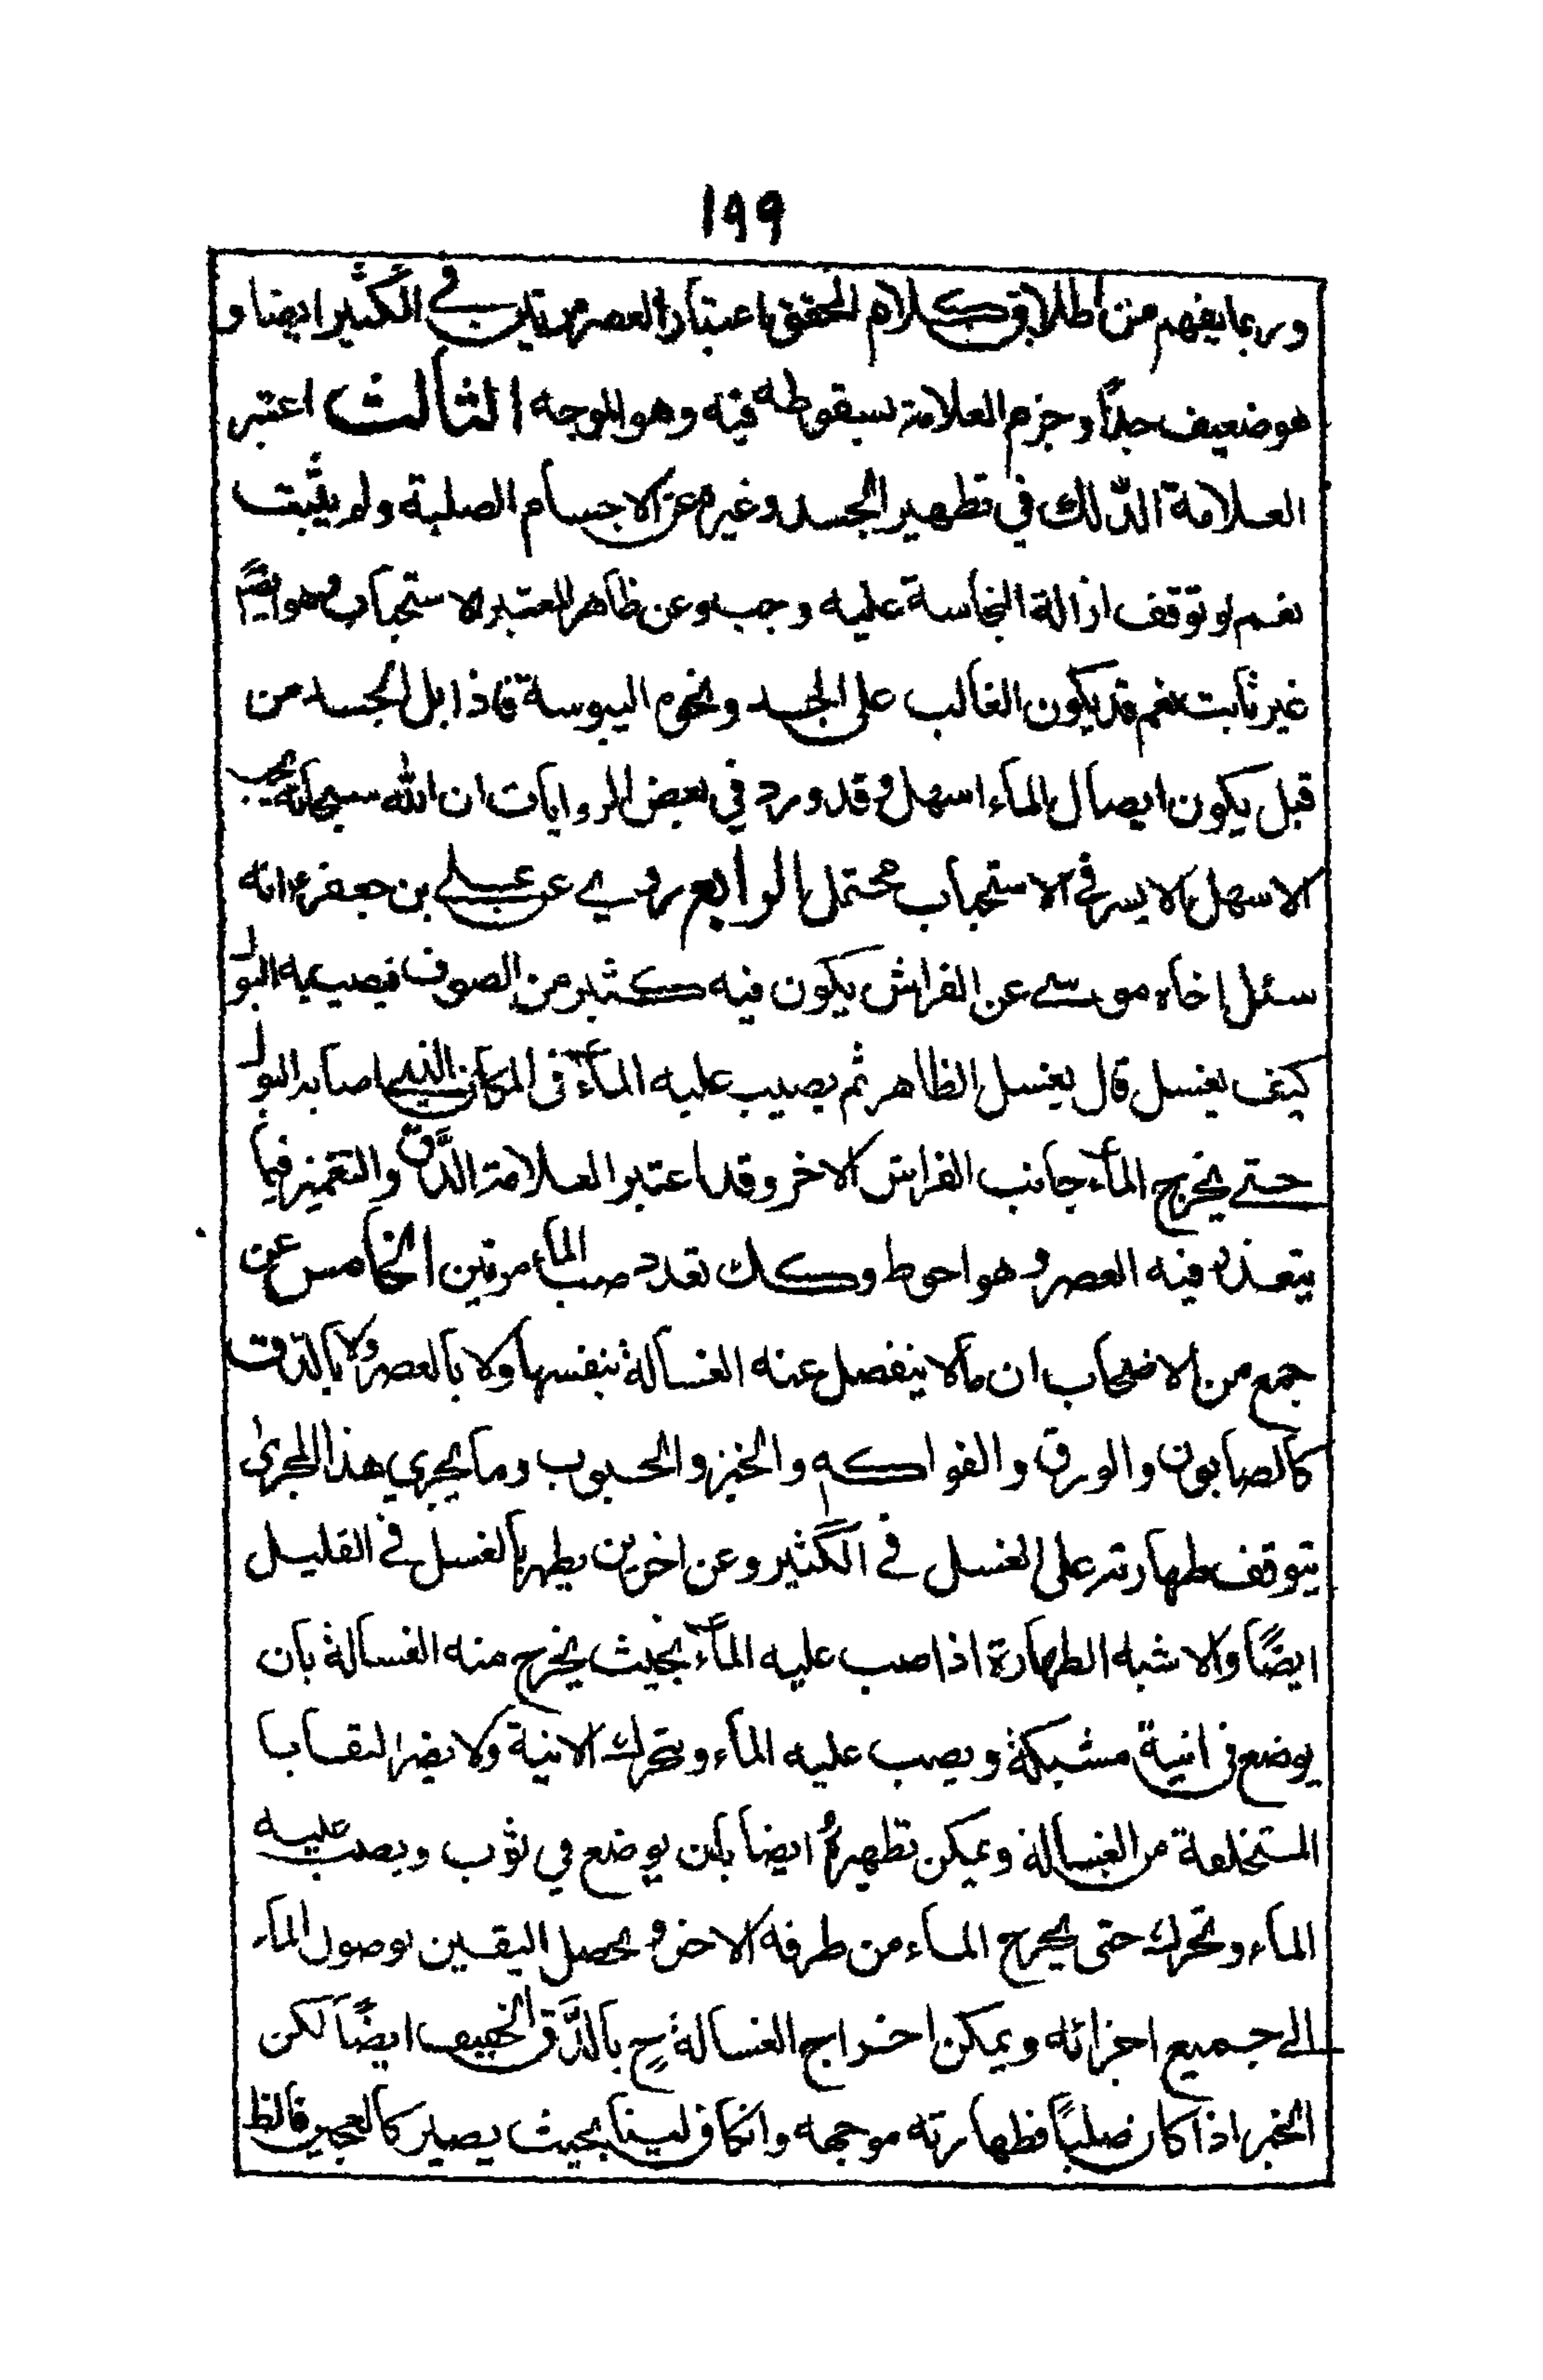 ١٩٩
وربما يفهم من اطلاق كلام المحقق اعتبار العصر مرتين في الكثير ايضا و
هو ضعيف جدًا وجزم العلامة بسقوطه فيه وهو الموجه الثالث اعتبر
العلامة الدّلك في تطهير الجسد وغيره عن الاجسام الصلبة ولم يثبت
نعم لو توقف ازالة النجاسة عليه وجب وعن ظاهر المعتبر الاستحباب وهو ايضًا
غير ثابت نعم قد يكون الغالب على الجسد ونحوه اليبوسة فاذا بل الجسد من
قبل يكون ايصال الماء اسهل وقد ورد في بعض الروايات ان الله سبحانه يحب
الاسهل الايسر في الاستحباب محتمل الرابع روي عن علي بن جعفر ع انه
سئل اخاه موسى عن الفراش يكون فيه كثير من الصوف فيصيبه البول
كيف يغسل قال يغسل الظاهر ثم يصيب عليه المآء فى المكان الذي اصابه البول
حتى يخرج المآء جانب الفراش الاخر وقد اعتبر العلامة الدَّق والتغميز فيما
يتعذر فيه العصر وهو احوط وكك تعدد صب الماء مرتين الخامس عن
جمع من الاصحاب ان مالا ينفصل عنه الغسالة بنفسها ولا بالعصر ولا بالدق
كالصابون والورق والفواكه والخبز والحبوب وما يجري هذا المجرى
يتوقف طهارته على الغسل في الكثير وعن اخرين يطهر بالغسل في القليل
ايضًا والاشبه الطهارة اذا صب عليه المآء بحيث يخرج منه الغسالة بان
يوضع في انية مشبكة ويصب عليه الماء ويحرك الانية ولا يضر البقايا
المستخلفة من الغسالة ويمكن تطهيره ايضا بان يوضع في ثوب ويصب عليه
الماء ويحرك حتى يخرج الماء من طرفه الاخر ويحصل اليقين بوصول الماء
الى جميع اجزائه ويمكن اخراج الغسالة ح بالدَّق الخفيف ايضًا لكن
الخبز اذا كان صلبًا فطهارته موجهه وانكان لينا بحيث يصير كالعجين فالظ